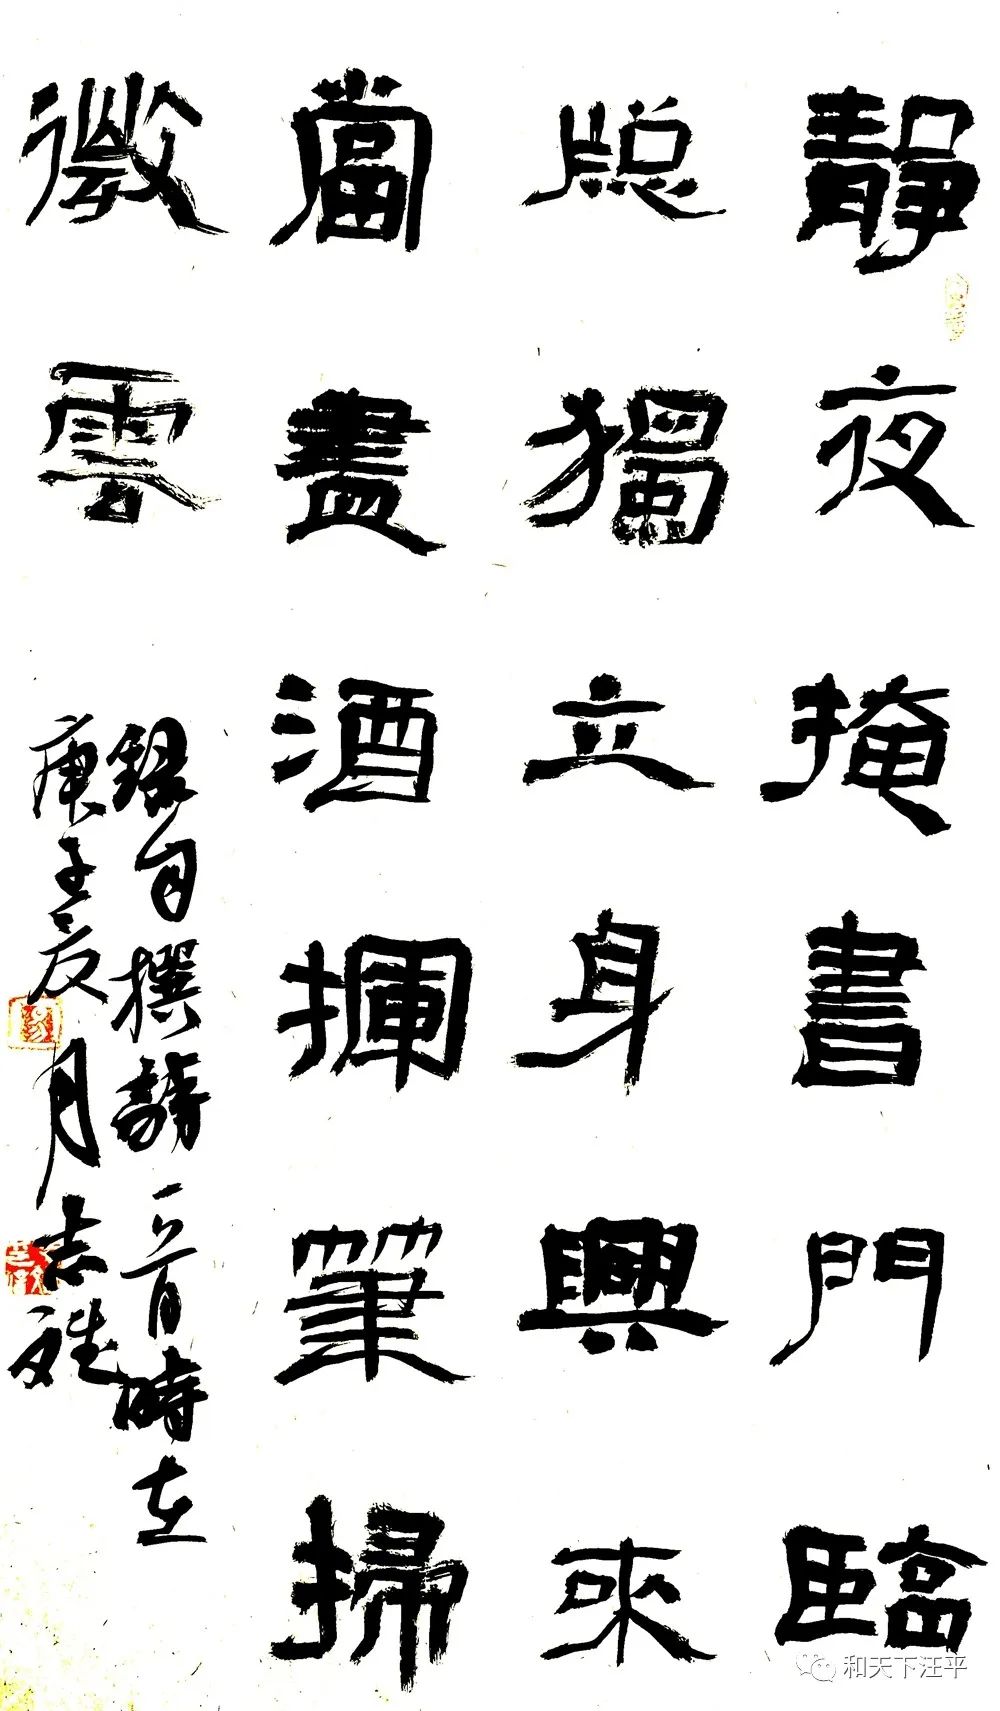 靜夜掩書門臨
牕獨立身興來
當盡酒揮筆掃
微雲
錄自撰詩一首時在
庚子夏月志雄
和天下汪平